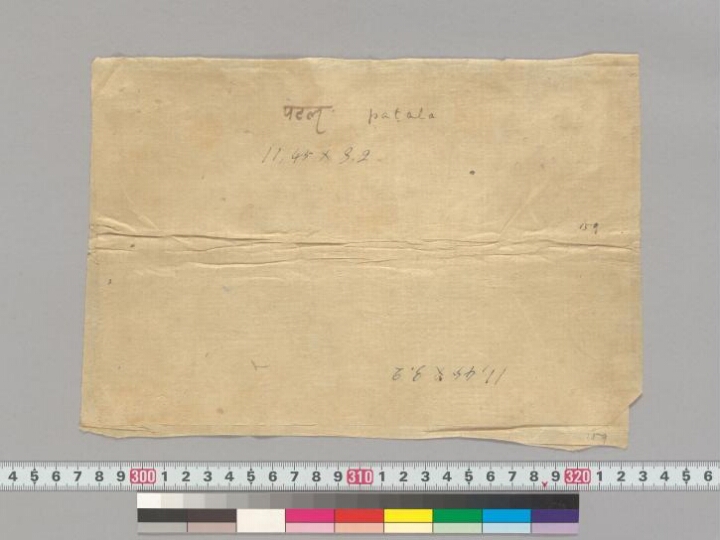 पटल paṭala
11,45 x 9.2
159
11,45 x 9.2
159
4 5 6 7 8 9 300 1 2 3 4 5 6 7 8 9 310 1 2 3 4 5 6 7 8 9 320 1 2 3 4 5 6